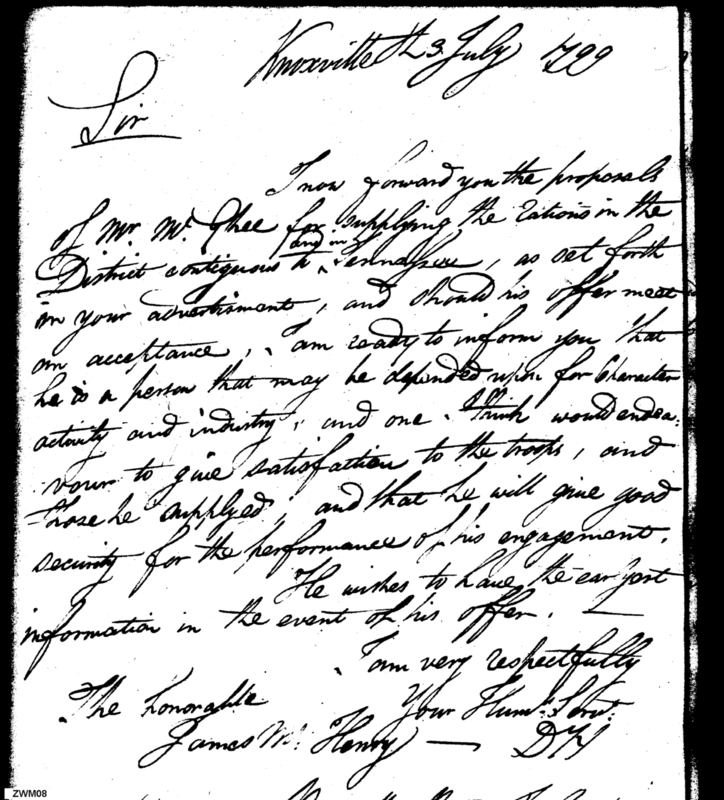 Knoxville th 3 July 1799
Sir
I now forward you the proposals
of Mr. Mc. Ghee for supplying the rations in the
and in
District contiguous to Tennessee, as set forth
in your advertisment, and should his offer meet
an acceptance, I am ready to inform you that
he is a person that may be depended upon for Character
activity and industry, and one I think would endea-
vour to give satisfaction to the troops, and
those he supplyed, and that he will give good
security for the performance of his engagement.
He wishes to have the earlyest
information in the event of his offer. —
I am very respectfully
The honorable Your Humb. Servt.
James Mc. Henry — DH
ZWM08